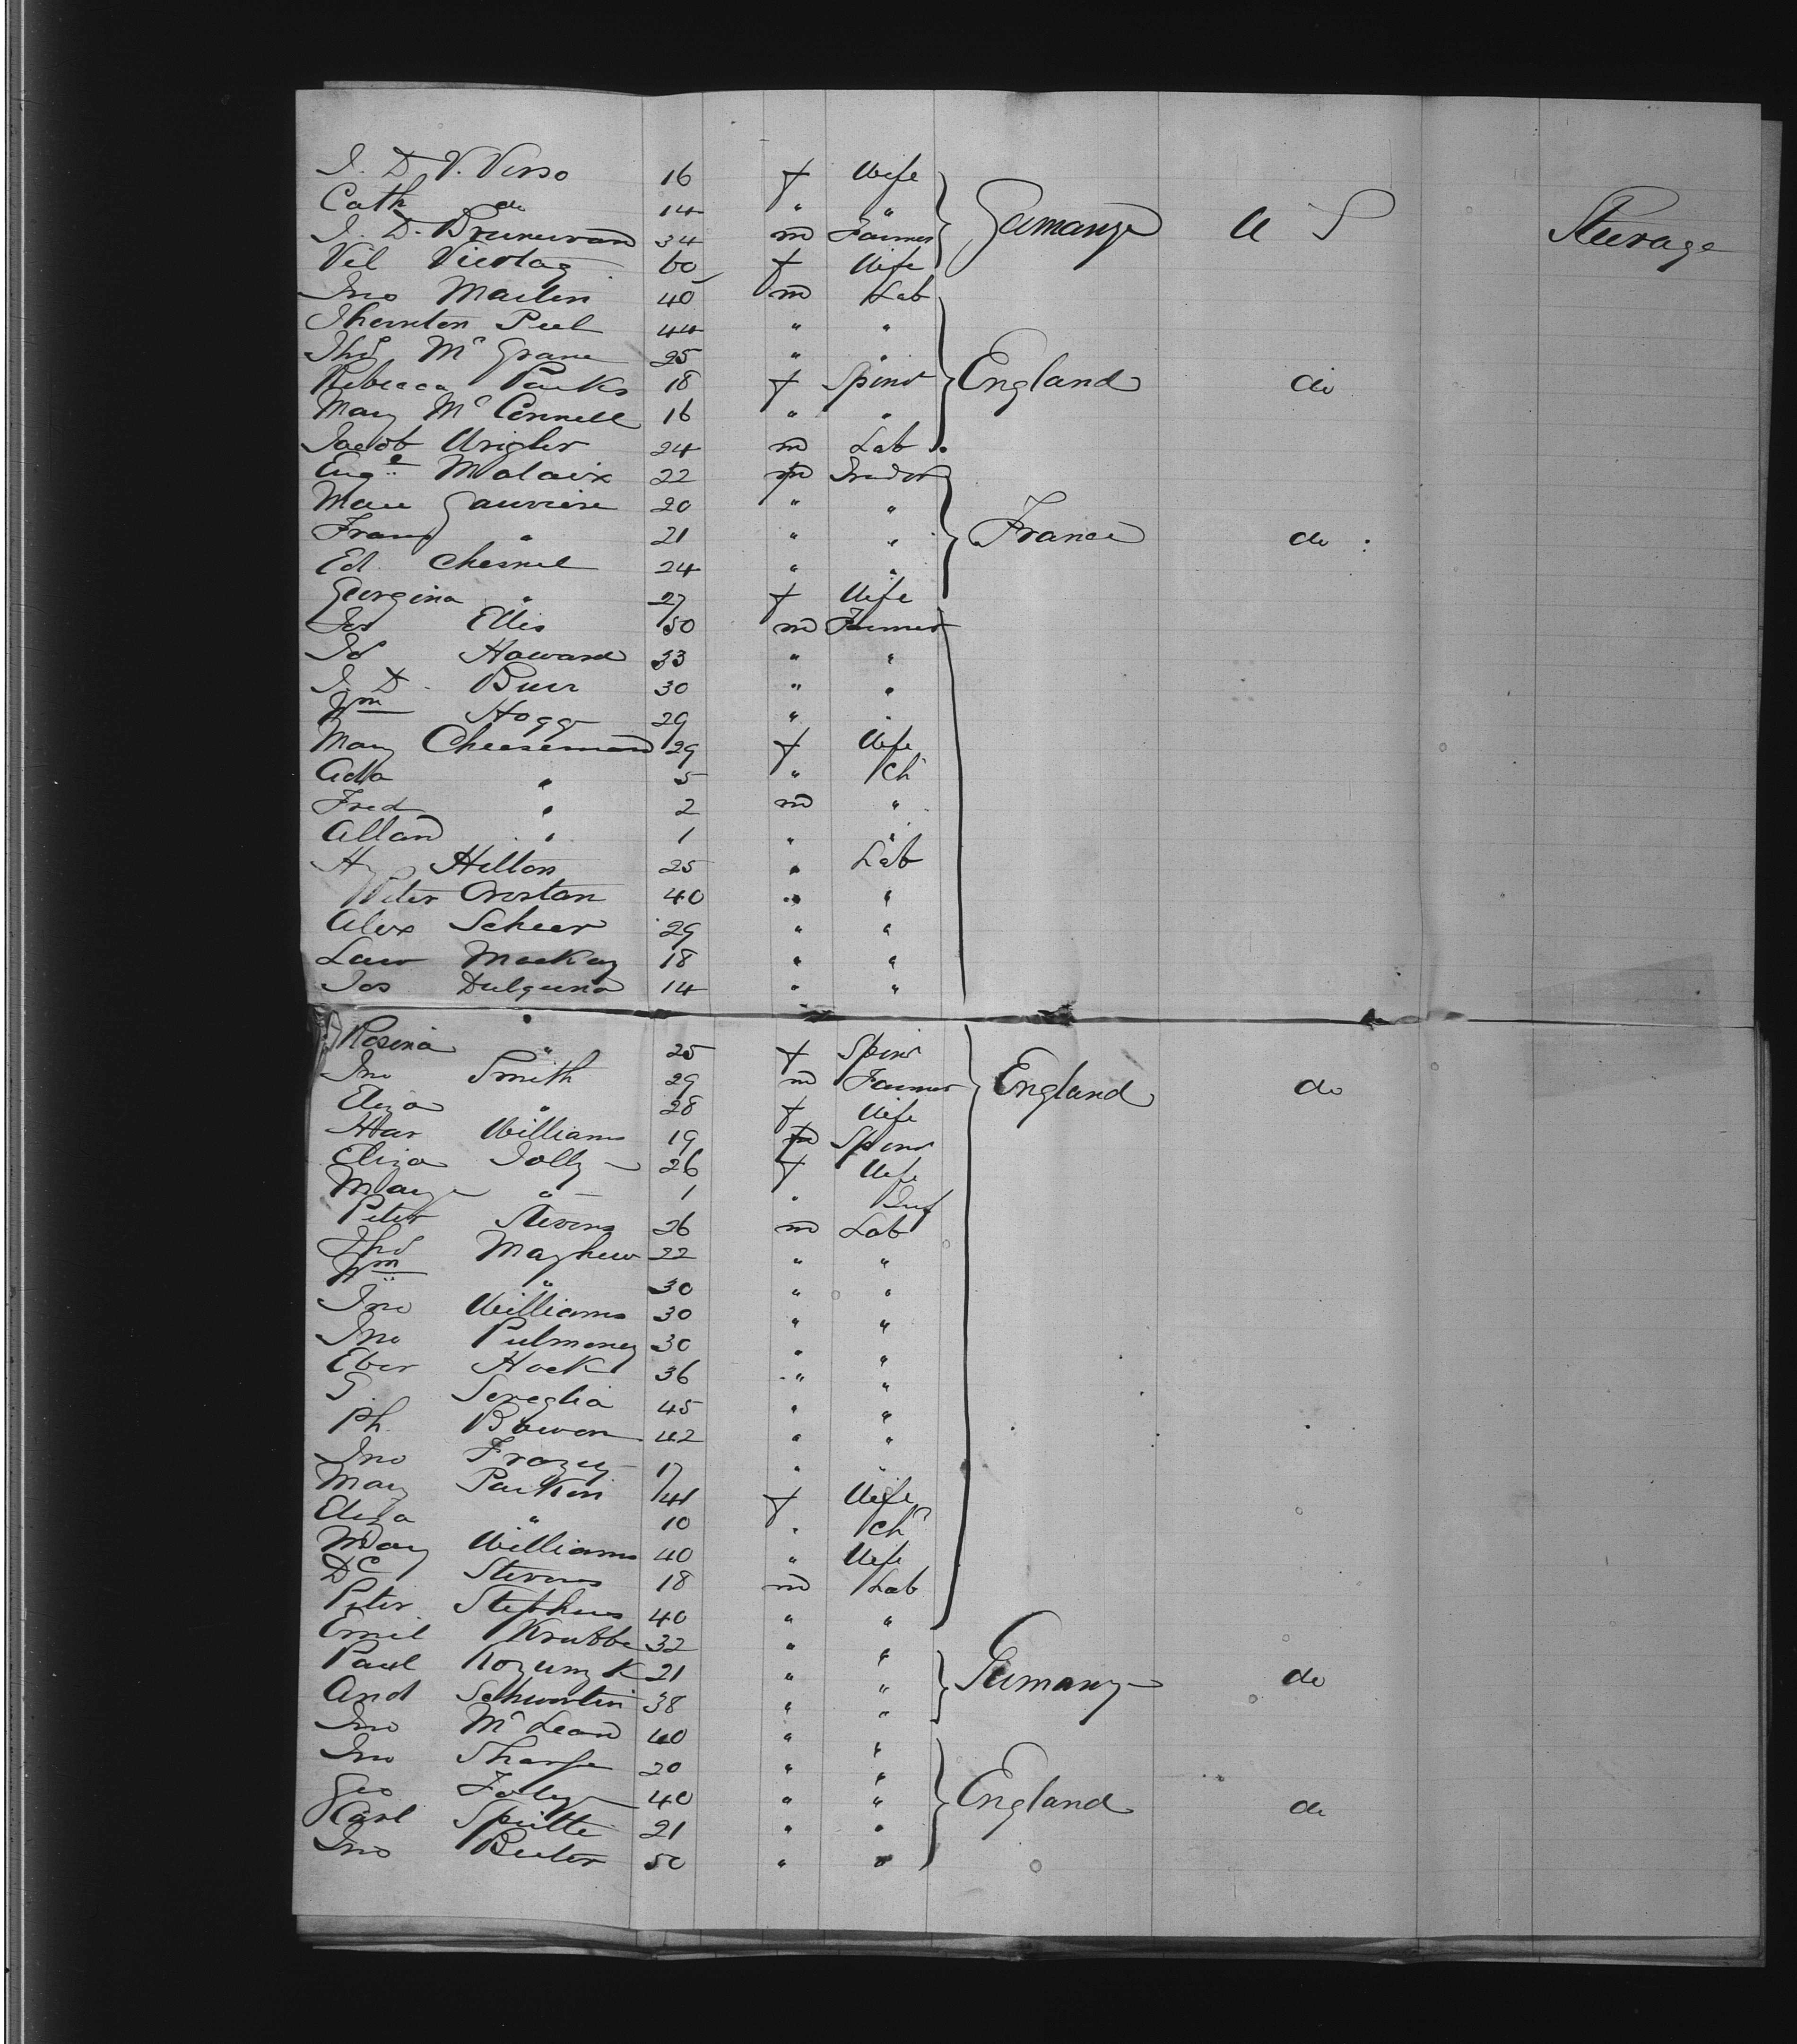 J. D. V. Verso 16 f Wife
Cath do 14 " " Germany U S Steerage
J. D. Drunewand 34 m Farmer
Vil 60 f Wife
Jno Martin 40 m Lab
Thornton Peel 44 " "
Thos McGrane 25 " "
Rebecca Parks 18 f Spinr England do
Mary McConnell 16 " "
Jacob Wrigler 24 m Lab
Euge Malaix 22 m
Marie Gauviere 20 " "
Franc " 21 " " France do
Ed Chesnel 24 " "
Georgina " 27 f Wife
Jos Ellis 50 m Farmer
Jd Howard 33 " "
J. D. Burr 30 " "
Wm Hogg 29 " "
Mary Cheeseman 29 f Wife
Ada " 5 " Ch
Fred " 2 m "
Allan " 1 " "
Hy Hilton 25 " Lab
Peter Crostan 40 " "
Alex Scheer 29 " "
Law Mackay 18 " "
Jos Dulguna 14 " "
Rosina " 25 f Spinr
Jno Smith 29 m Farmer England do
Eliza " 28 f Wife
Har Williams 19 f Spinr
Eliza Jolly 26 f Wife
Mary " 1 " Inf
Peter Stevens 26 m Lab
Thos Mayhew 22 " "
Wm " 30 " "
Jno Williams 30 " "
Jno Pulmoney 30 " "
Eber Hock 36 " "
G. Sereglia 45 " "
Ph. Bowen 42 " "
Jno Frazey 17 " "
Mary Parkin 41 f Wife
Eliza " 10 " Ch
Mary Williams 40 " Wife
DC Stevens 18 m Lab
Peter Stephens 40 " "
Emil Krubbe 32 " "
Paul 21 " " Germany do
And Schwortin 38 " "
Jno McLean 40 " "
Jno Sharpe 20 " "
Geo Foley 40 " " England do
Carl Spitte 21 " "
Jno Beeter 50 " "